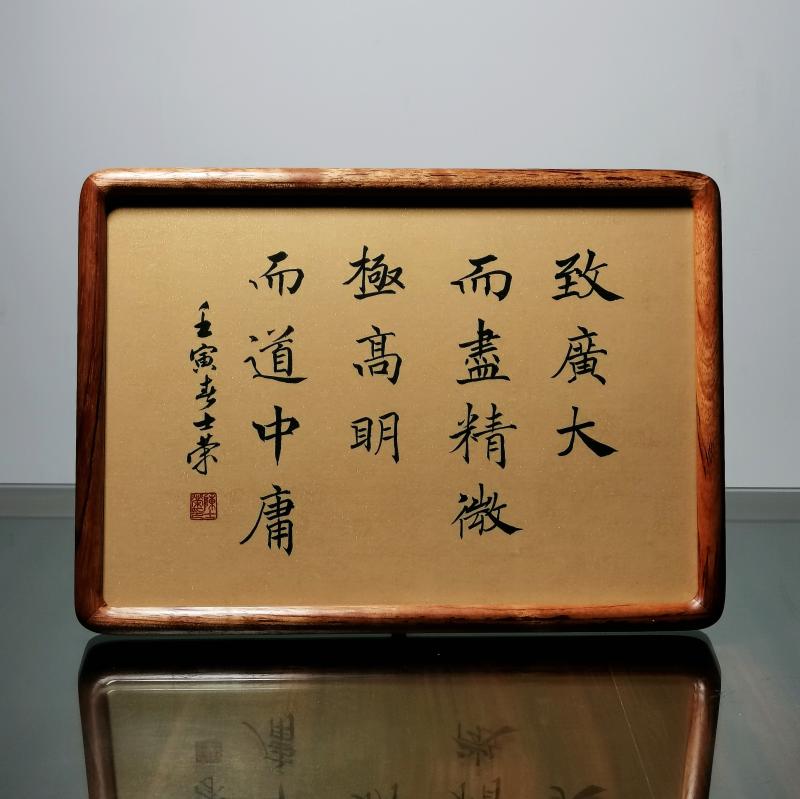 致廣大
而盡精微
極髙明
而道中庸
壬寅春士荣